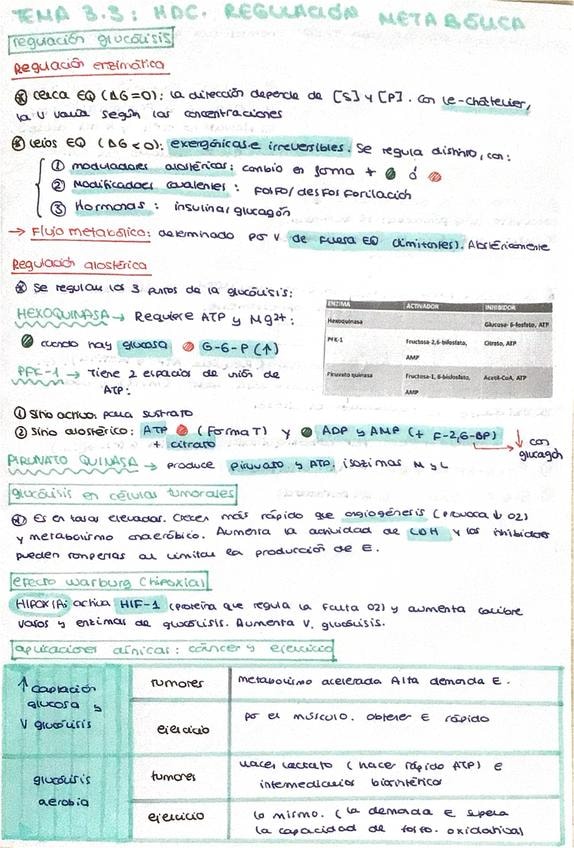 TEMA 3.3: HDC. REGULACIÓN METABÓLICA
regulación glucólisis
Regulación enzimática
cerca EQ (ΔG=0): la dirección depende de [S] y [P]. Con le-châtelier,
la V varía según las concentraciones
lejos EQ (ΔG<0): exergónicas e irreversibles. Se regula distinto, con:
① moduladores alostéricos: cambio en forma + ó
② Modificadores covalentes: fosfo/desfosforilación
③ Hormonas: insulina/glucagón
→ Flujo metabólico: determinado por V de fuera EQ (limitantes). Alostéricamente
Regulación alostérica
Se regulan los 3 puntos de la glucólisis:
HEXOQUINASA → Requiere ATP y Mg2+:
cuando hay glucosa G-6-P (↑)
PFK-1 → Tiene 2 espacios de unión de
ATP:
① Sitio activo: para sustrato
② Sitio alostérico: ATP (forma T) y ADP y AMP (+ F-2,6-BP) ↓ con
+ citrato glucagón
ENZIMA ACTIVADOR INHIBIDOR
Hexoquinasa Glucosa-6-fosfato, ATP
PFK-1 Fructosa-2,6-bifosfato, Citrato, ATP
AMP
Piruvato quinasa Fructosa-1,6-bisfosfato, Acetil-CoA, ATP
AMP
PIRUVATO QUINASA → produce piruvato y ATP, isozimas M y L
glucólisis en células tumorales
Es en tasas elevadas. Crecen más rápido que angiogénesis (provoca ↓ O2)
y metabolismo anaeróbico. Aumenta la actividad de LDH y los inhibidores
pueden romperlas al limitar la producción de E.
efecto Warburg (hipoxia)
HIPOXIA: activa HIF-1 (proteína que regula la falta O2) y aumenta calibre
vasos y enzimas de glucólisis. Aumenta V. glucólisis.
aplicaciones clínicas: cáncer y ejercicio
↑ captación
glucosa y
V glucólisis
tumores metabolismo acelerado Alta demanda E.
ejercicio por el músculo. obtener E rápido
glucólisis
aerobia
tumores hacer lactato (hacer rápido ATP) e
intermediarios biosintéticos
ejercicio lo mismo. (la demanda E supera
la capacidad de fosfo. oxidativa)